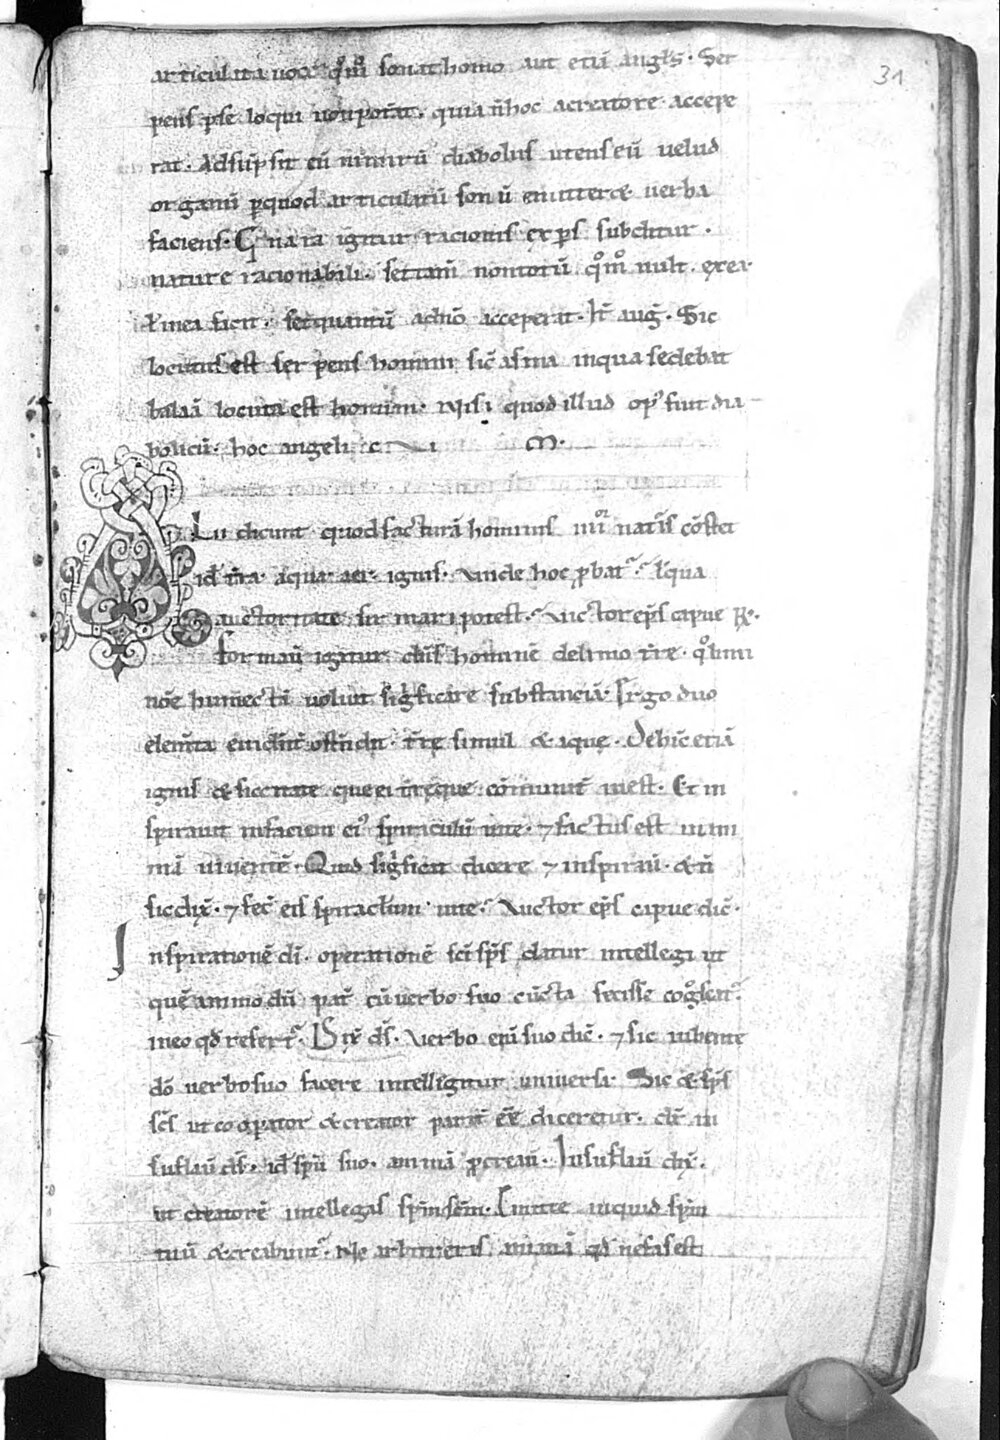 31
articulata uoce q̊m̊ sonat homo aut etiā angl̄s. Ser
pens p̱se loqui non poterat. quia n̄ hoc a creatore accepe
rat. Adsūpsit eū nimirū diabolus utens eū uelud
organū ꝑ quod articulatū sonū emitteret uerba
faciens. Q natā igitur racionis exꝑs subditur.
nature racionabili. set tam̄ non totū q̊m̊ uult. ex ea
ł in ea facit. set quantū a dn̄o acceperat. It̄ auḡ. Sic
locutus est serpens homini sic̄ asina in qua sedebat
balaā locuta est homini. Nisi quod illud opꝰ fuit dia
bolicū. hoc angelicum.
Alii dicunt quod facturā hominis iiiior nat̄is cōstet
id t̄ra. aqua. aer. ignis. Vnde hoc ꝓbat᷑. ł qua
auctoritate firmari potest. Auctor ep̄s cipue R̷.
formauit igitur dn̄s hominē de limo t̄re. q̊ limi
nōe humectā uoluit sig̊ficare substanciā. Ergo duo
elem̄ta euidēt̄ ostēdit. t̄rę simul & aque. Dehinc etiā
ignis & siccitate que ei t̄reque cōmunit̄ inest. Et in
spirauit in faciem eiꝰ spiraculū uite. ⁊ factus est in ani
mā uiuentē. Quid sig̊ficat dicere ⁊ inspirauit. & n̄
sic dix̄. ⁊ fec̄ eis spiraculum uite. Auctor ep̄s cipue dic̄.
Inspirationē dī. operationē sc̄i sp̄s datur intellegi ut
quēammodū pat̄ cū uerbo suo cūcta fecisse cog̊scat᷑.
in eo qđ refert᷑. Dix̄ ds̄. Verbo enī suo dic̄. ⁊ sic iubente
dō uerbo suo facere intelligitur uniuersa. Sic & sp̄s
sc̄s ut coopator & creator parit̄ ēe diceretur. dr̄ in
suflauit eis. id sp̄u suo. animā ꝓcreauit. Insuflauit dix̄.
ut creatorē intellegas sp̄m scm̄. Emitte inquid sp̄m
tuū & creabunt᷑. Ne arbitreris animā qđ nefas est